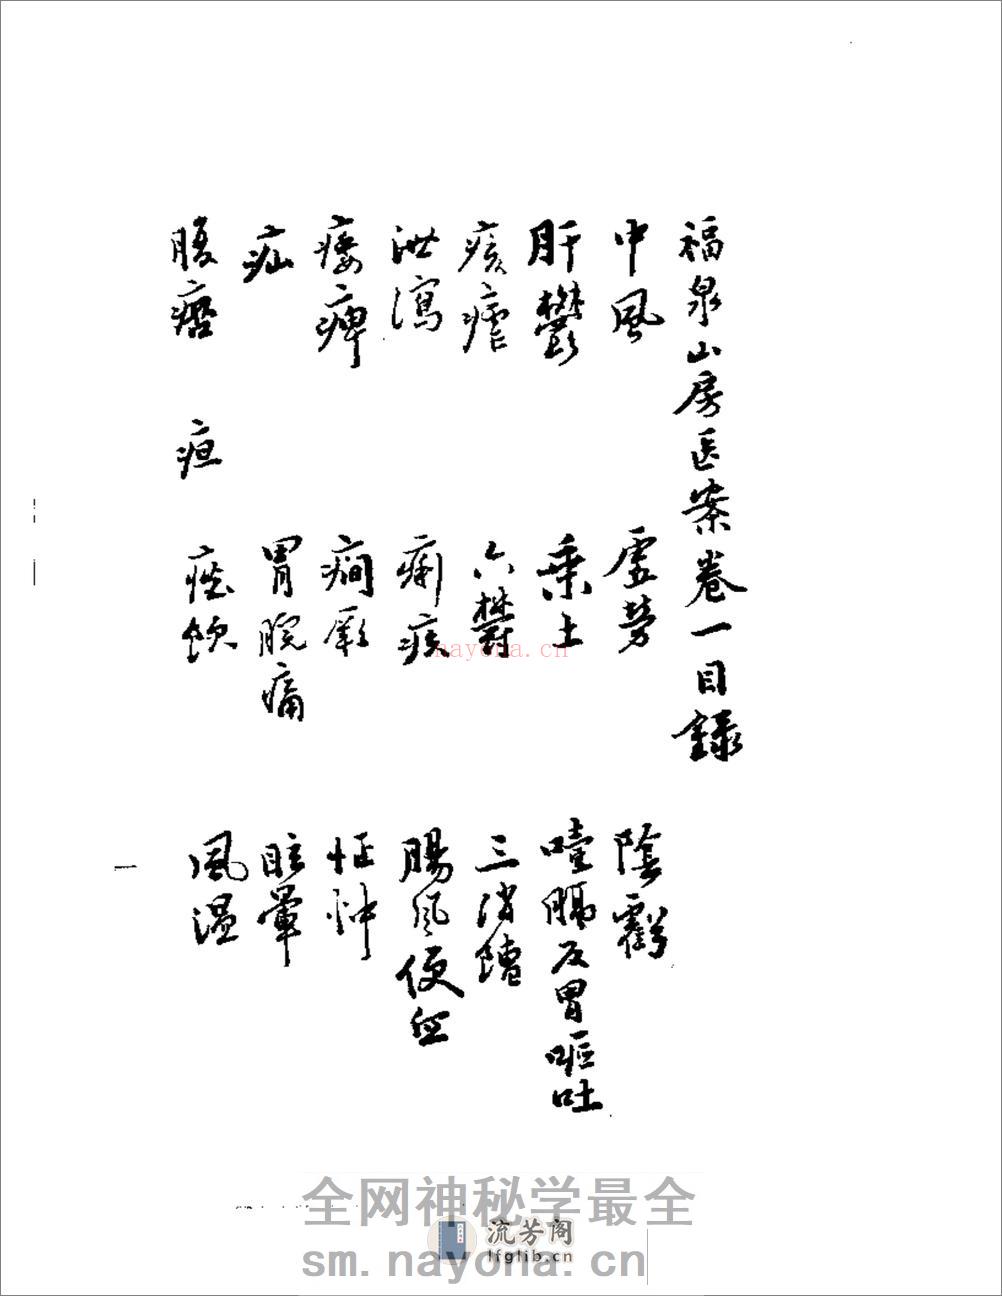 福泉山房医案卷一目錄
中風 虛勞 陰虧
肝鬱 乘土 噎膈反胃嘔吐
痎瘧 六鬱 三消 嘈
泄瀉 痢疾 腸風便血
痿痺 癇厥 怔忡
疝 胃脘痛 眩暈
腹痞 疸 痰飲 風温
一
nayona.cn
全网神秘学最全
流芳阁
lfglib.cn
sm.nayona.cn